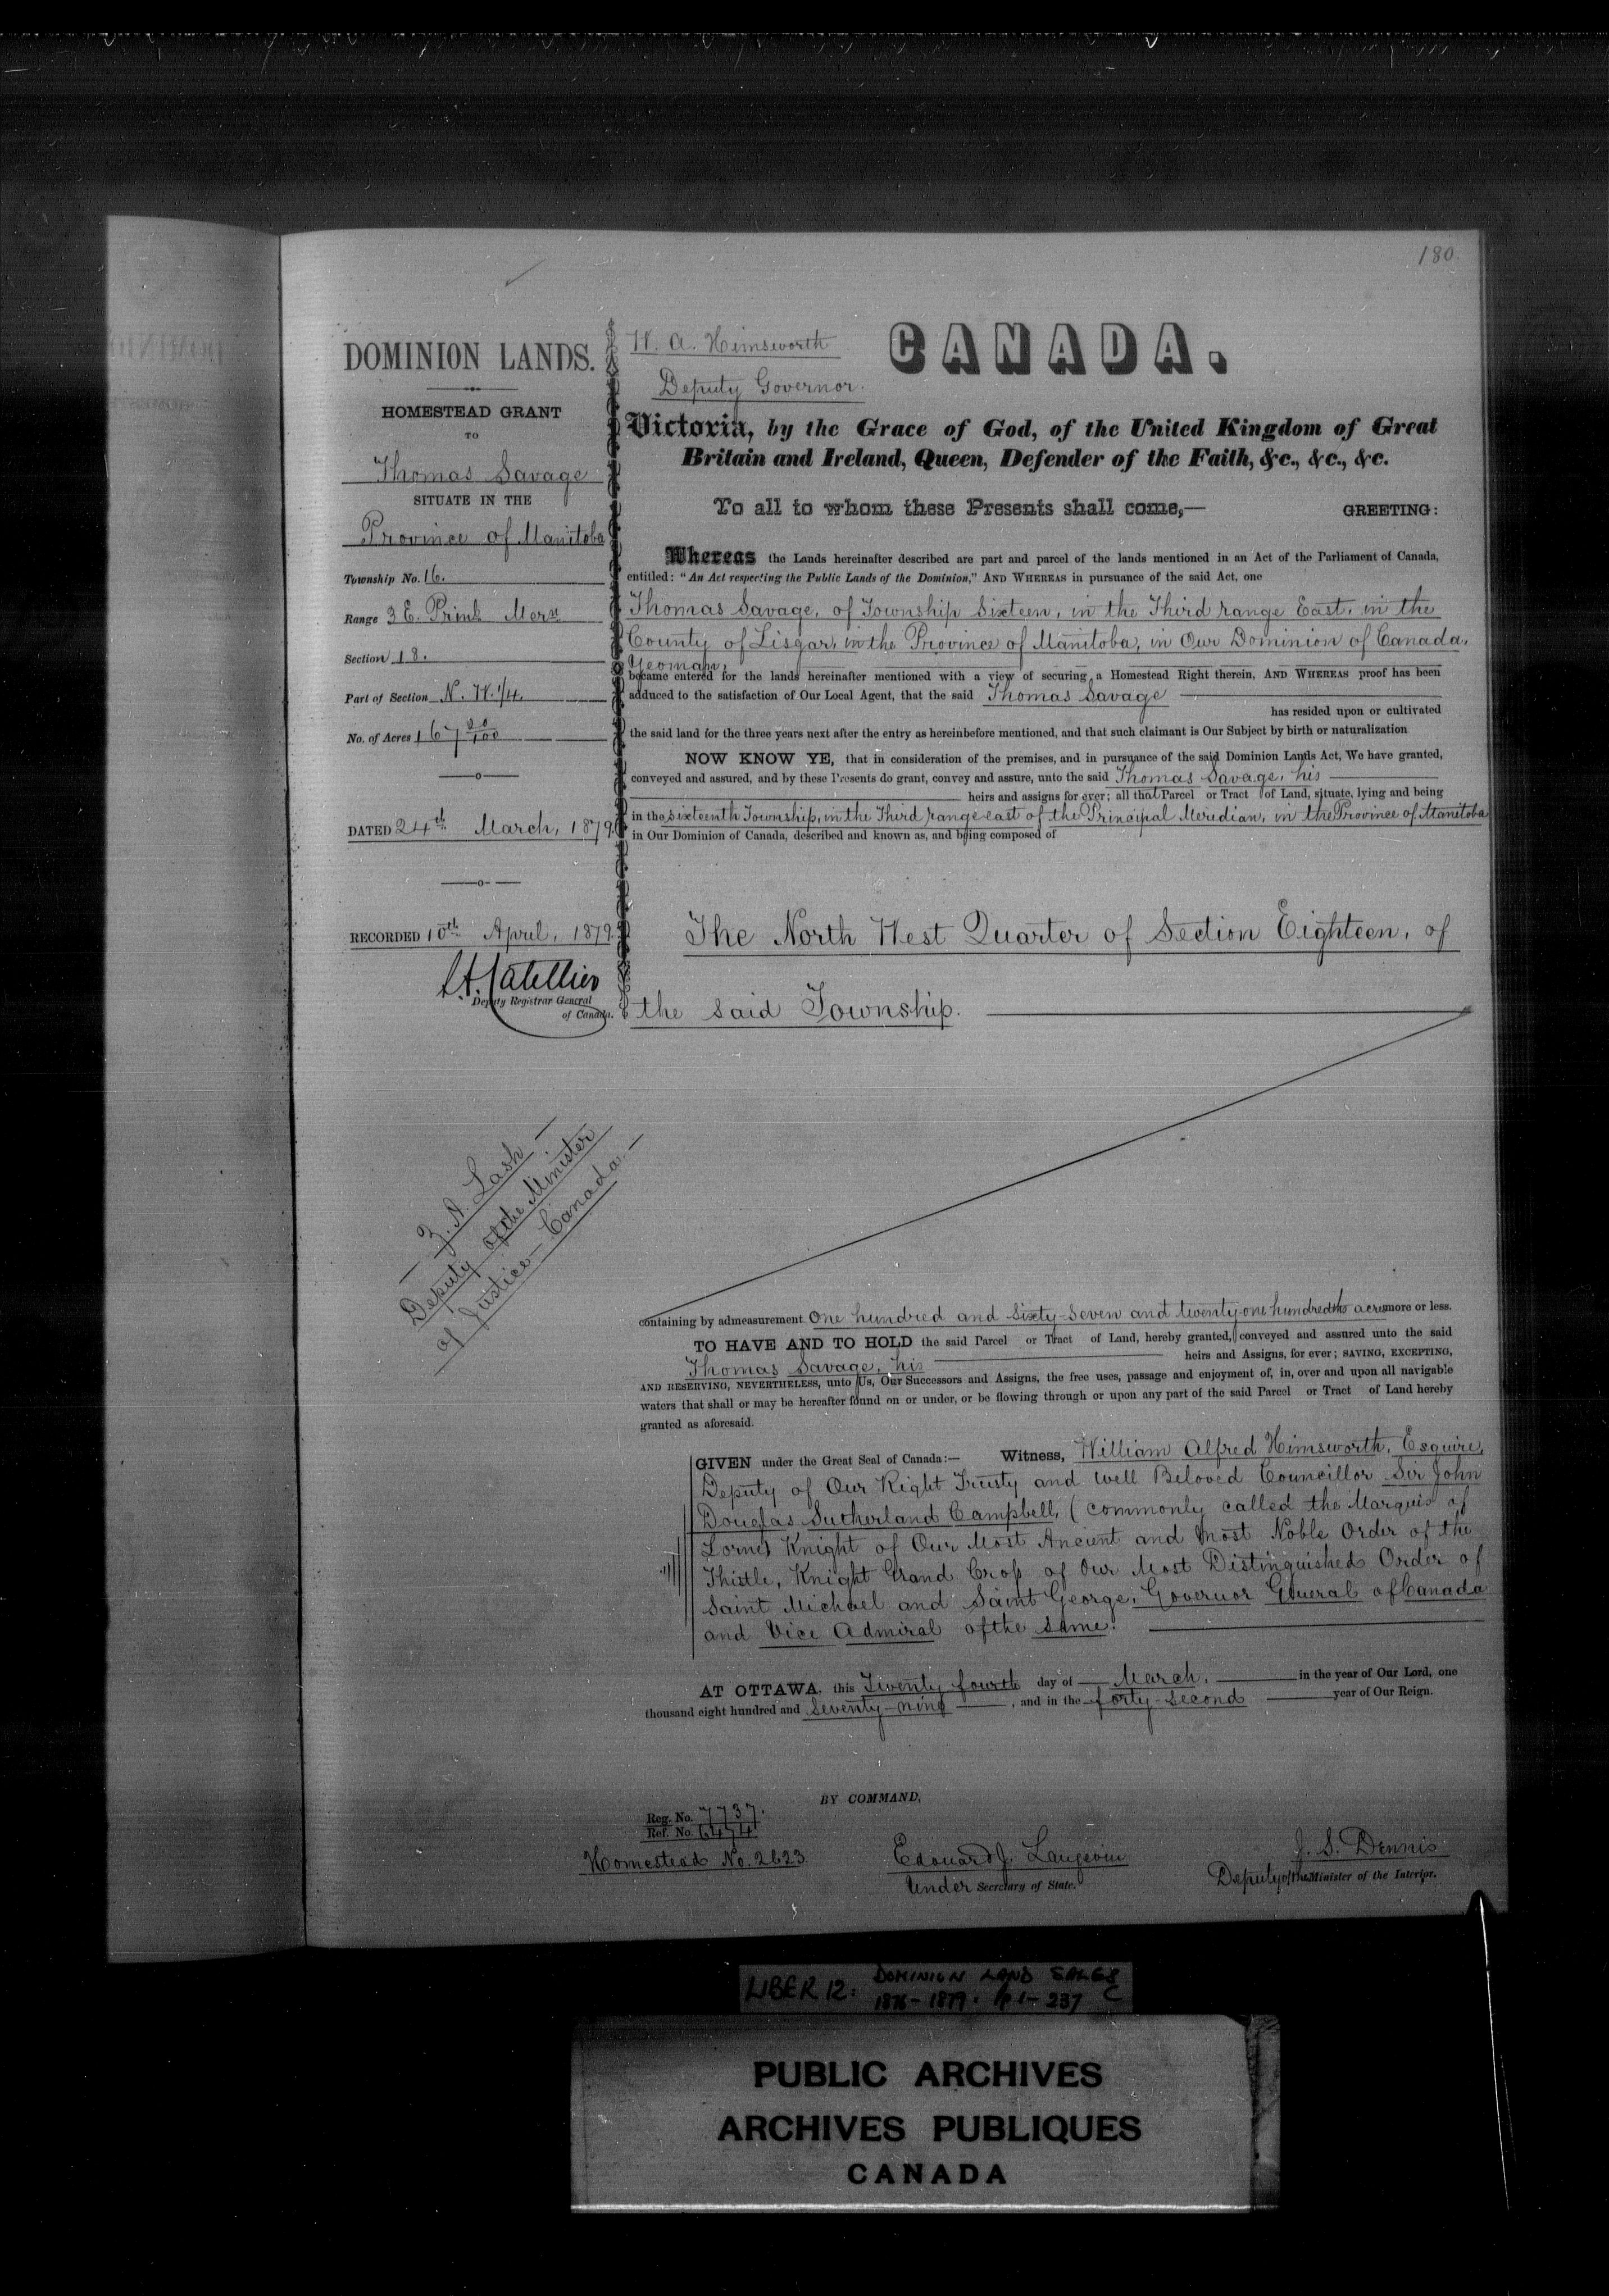 180.
DOMINION LANDS.
HOMESTEAD GRANT
TO
Thomas Savage
SITUATE IN THE
Province of Manitoba
Township No. 16.
Range 3 E. Prinl Mern
Section 18.
Part of Section N. W. 1/4.
No. of Acres 167 20/100
DATED 24th March, 1879.
RECORDED 10th April, 1879.
Deputy Registrar General
of Canada.
Z. A. Lash
Deputy of the Minister
of Justice – Canada.
W. A. Himsworth
Deputy Governor.
CANADA.
Victoria, by the Grace of God, of the United Kingdom of Great
Britain and Ireland, Queen, Defender of the Faith, &c., &c., &c.
To all to whom these Presents shall come,— GREETING:
Whereas the Lands hereinafter described are part and parcel of the lands mentioned in an Act of the Parliament of Canada,
entitled: "An Act respecting the Public Lands of the Dominion," AND WHEREAS in pursuance of the said Act, one
Thomas Savage, of Township Sixteen, in the Third range East, in the
County of Lisgar, in the Province of Manitoba, in Our Dominion of Canada,
Yeoman,
became entered for the lands hereinafter mentioned with a view of securing a Homestead Right therein, AND WHEREAS proof has been
adduced to the satisfaction of Our Local Agent, that the said Thomas Savage
has resided upon or cultivated
the said land for the three years next after the entry as hereinbefore mentioned, and that such claimant is Our Subject by birth or naturalization
NOW KNOW YE, that in consideration of the premises, and in pursuance of the said Dominion Lands Act, We have granted,
conveyed and assured, and by these Presents do grant, convey and assure, unto the said Thomas Savage, his
heirs and assigns for ever; all that Parcel or Tract of Land, situate, lying and being
in the sixteenth Township, in the Third range east of the Principal Meridian, in the Province of Manitoba
in Our Dominion of Canada, described and known as, and being composed of
The North West Quarter of Section Eighteen, of
the said Township.
containing by admeasurement One hundred and sixty-seven and twenty one hundredths acres more or less.
TO HAVE AND TO HOLD the said Parcel or Tract of Land, hereby granted, conveyed and assured unto the said
Thomas Savage, his heirs and Assigns, for ever; SAVING, EXCEPTING,
AND RESERVING, NEVERTHELESS, unto Us, Our Successors and Assigns, the free uses, passage and enjoyment of, in, over and upon all navigable
waters that shall or may be hereafter found on or under, or be flowing through or upon any part of the said Parcel or Tract of Land hereby
granted as aforesaid.
GIVEN under the Great Seal of Canada:— Witness, William Alfred Himsworth, Esquire,
Deputy of Our Right Trusty and well Beloved Councillor Sir John
Douglas Sutherland Campbell, (commonly called the Marquis of
Lorne) Knight of Our Most Ancient and Most Noble Order of the
Thistle, Knight Grand Cross of Our Most Distinguished Order of
Saint Michael and Saint George, Governor General of Canada
and Vice Admiral of the same.
AT OTTAWA, this Twenty fourth day of March, in the year of Our Lord, one
thousand eight hundred and seventy-nine, and in the forty-second year of Our Reign.
BY COMMAND,
Reg. No. 7737.
Ref. No. 6474
Homestead No. 2623
Edouard J. Langevin
Under Secretary of State.
J. S. Dennis
Deputy of the Minister of the Interior.
LIBER 12: DOMINION LAND SALES
1876-1879. pp 1-237 C
PUBLIC ARCHIVES
ARCHIVES PUBLIQUES
CANADA